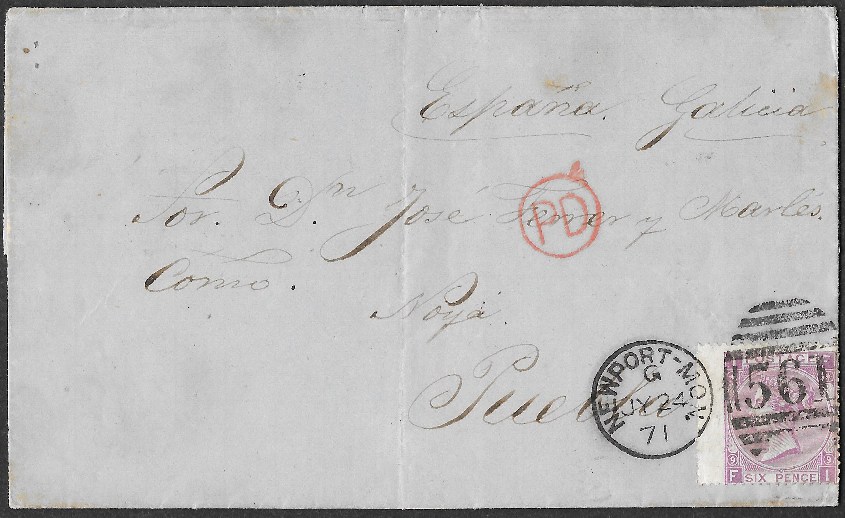 España. Galicia
Sor. Dn. José Ferrer y Marlés.
PD
Como.
Noya.
Puebla
NEWPORT-MON
G
JY 24
71
POSTAGE
561
9 9
F SIX PENCE I